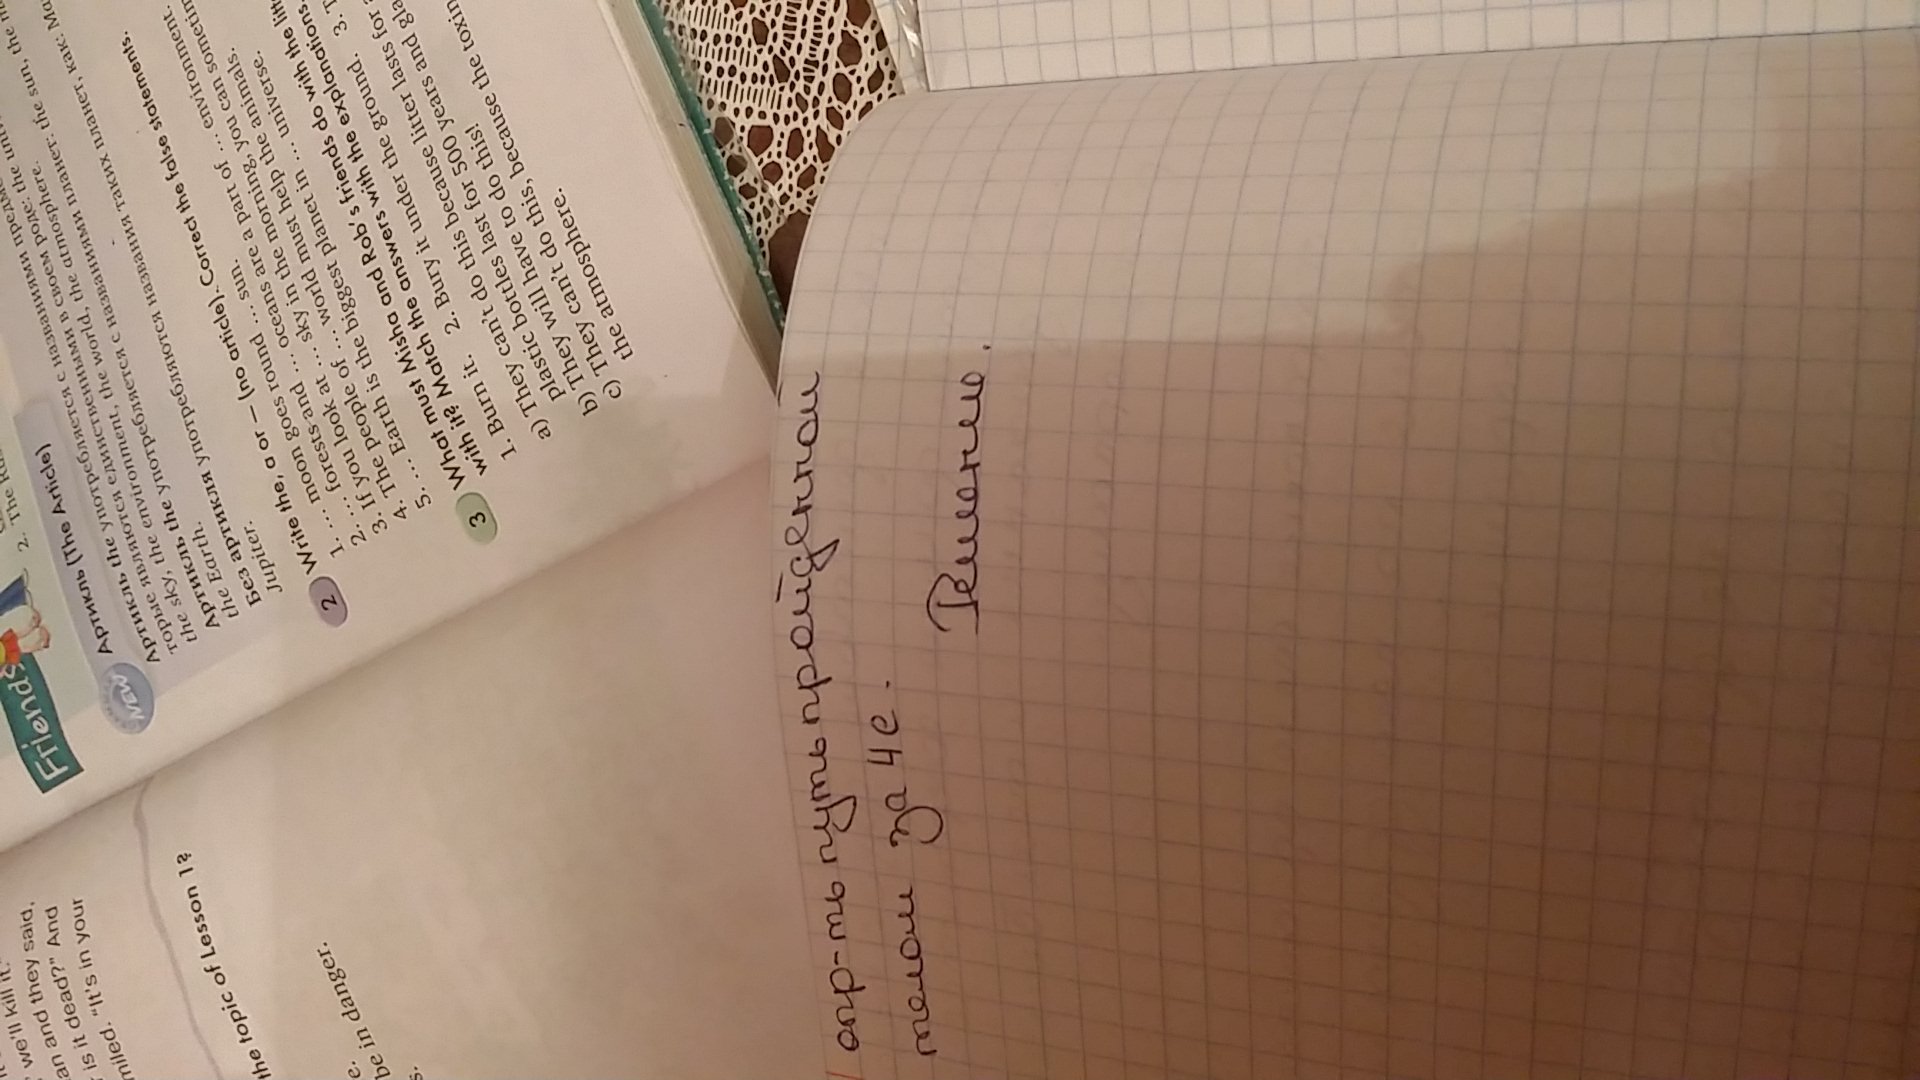 Friends
2. The Rus
NEW
Артикль (The Article)
Артикль the употребляется с названиями предме
торые являются единственными в своем роде: the sun, the m
the sky, the environment, the world, the atmosphere.
Артикль the употребляется с названиями планет:
the Earth.
Без артикля употребляются названия таких планет, как: Ma
Jupiter.
2 Write the, a or — (no article). Correct the false statements.
1. ... moon goes round ... sun.
2. ... forests and ... oceans are a part of ... environment.
3. If you look at ... sky in the morning, you can sometim
4. The people of ... world must help the animals.
5. ... Earth is the biggest planet in ... universe.
3 What must Misha and Rob's friends do with the lit
with it? Match the answers with the explanations.
1. Burn it. 2. Bury it under the ground. 3. T
a) They can't do this because litter lasts for
plastic bottles last for 500 years and gla
b) They will have to do this!
c) They can't do this, because the toxin
the atmosphere.
we'll kill it."
an and they said,
is it dead?" And
miled. "It's in your
the topic of Lesson 1?
e.
be in danger.
s.
опр-ть путь пройденной
телом за 4с.
Решение.